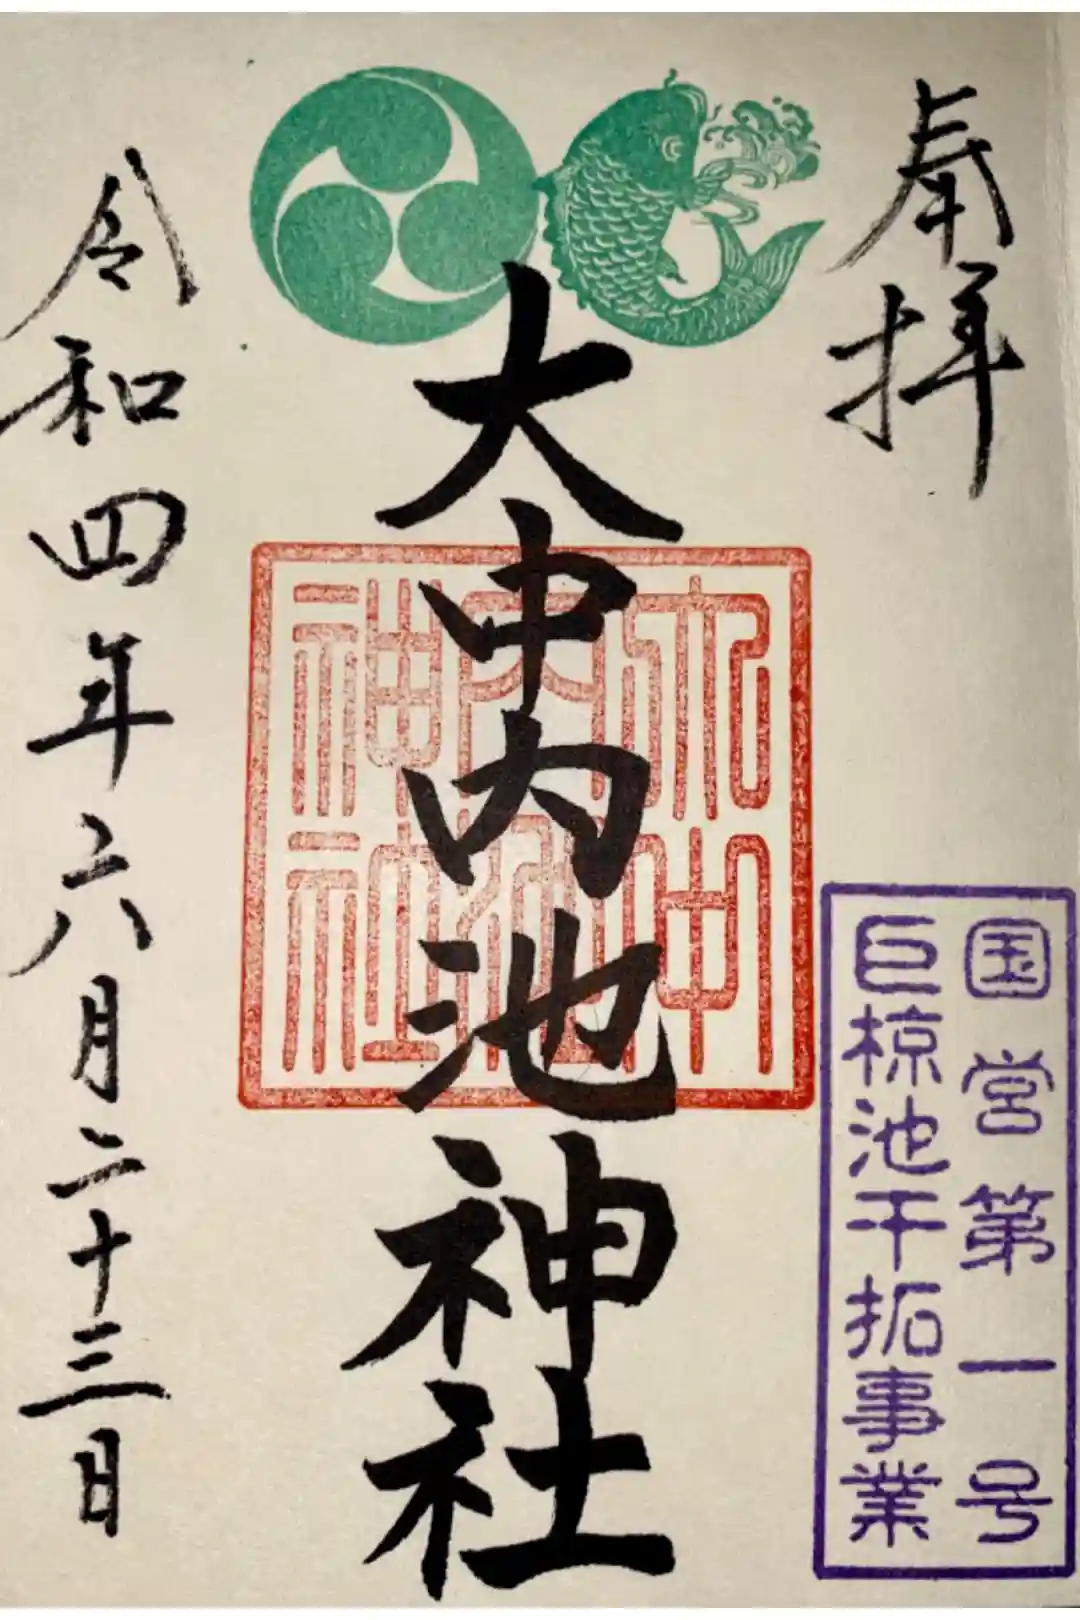 奉拝
国営第一号
巨椋池干拓事業
大中内池神社
大中
内池
神社
令和四年六月二十三日